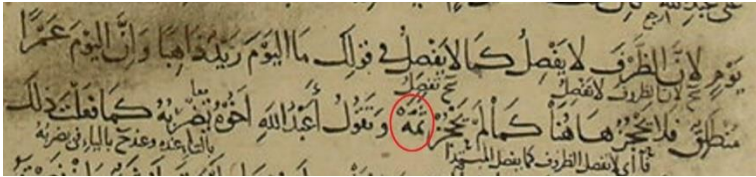 على عبد الله
يوم لان الظرف لا يفصل كما لا يفصل في قولك ما اليوم زيد ذاهبا وان اليوم عمرا
لان الظروف لا تفصل
منطلق فلا تحجز هاهنا كما لم تحجز ثمه وتقول أعبد الله اخوه تضربه كما فعلت ذلك
معا
بالتا عنده وعند ح باليا في يضربه
فا أي لا تفصل الظروف كما يفصل المبتدا